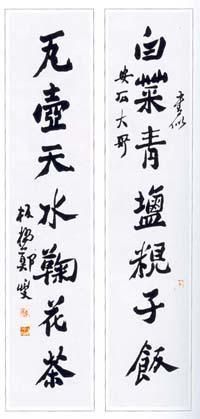 書似
白菜青鹽粯子飯
安石大哥
瓦壺天水鞠花茶
板橋鄭燮